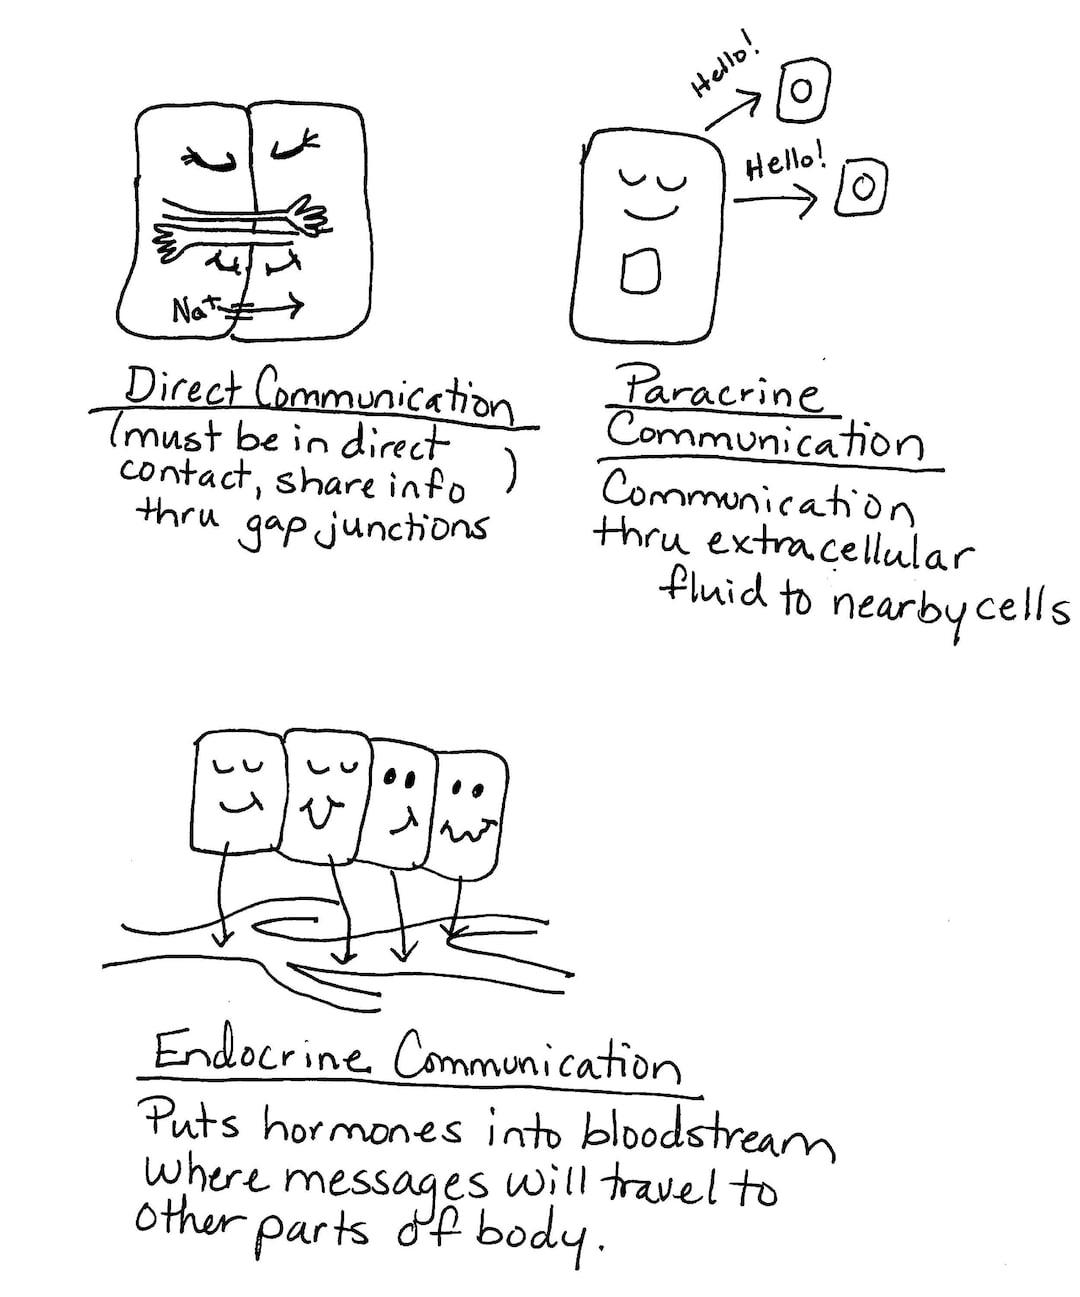 Hello!
Hello!
Na+
Direct Communication
(must be in direct
contact, share info )
thru gap junctions
Paracrine
Communication
Communication
thru extracellular
fluid to nearby cells
Endocrine Communication
Puts hormones into bloodstream
where messages will travel to
other parts of body.